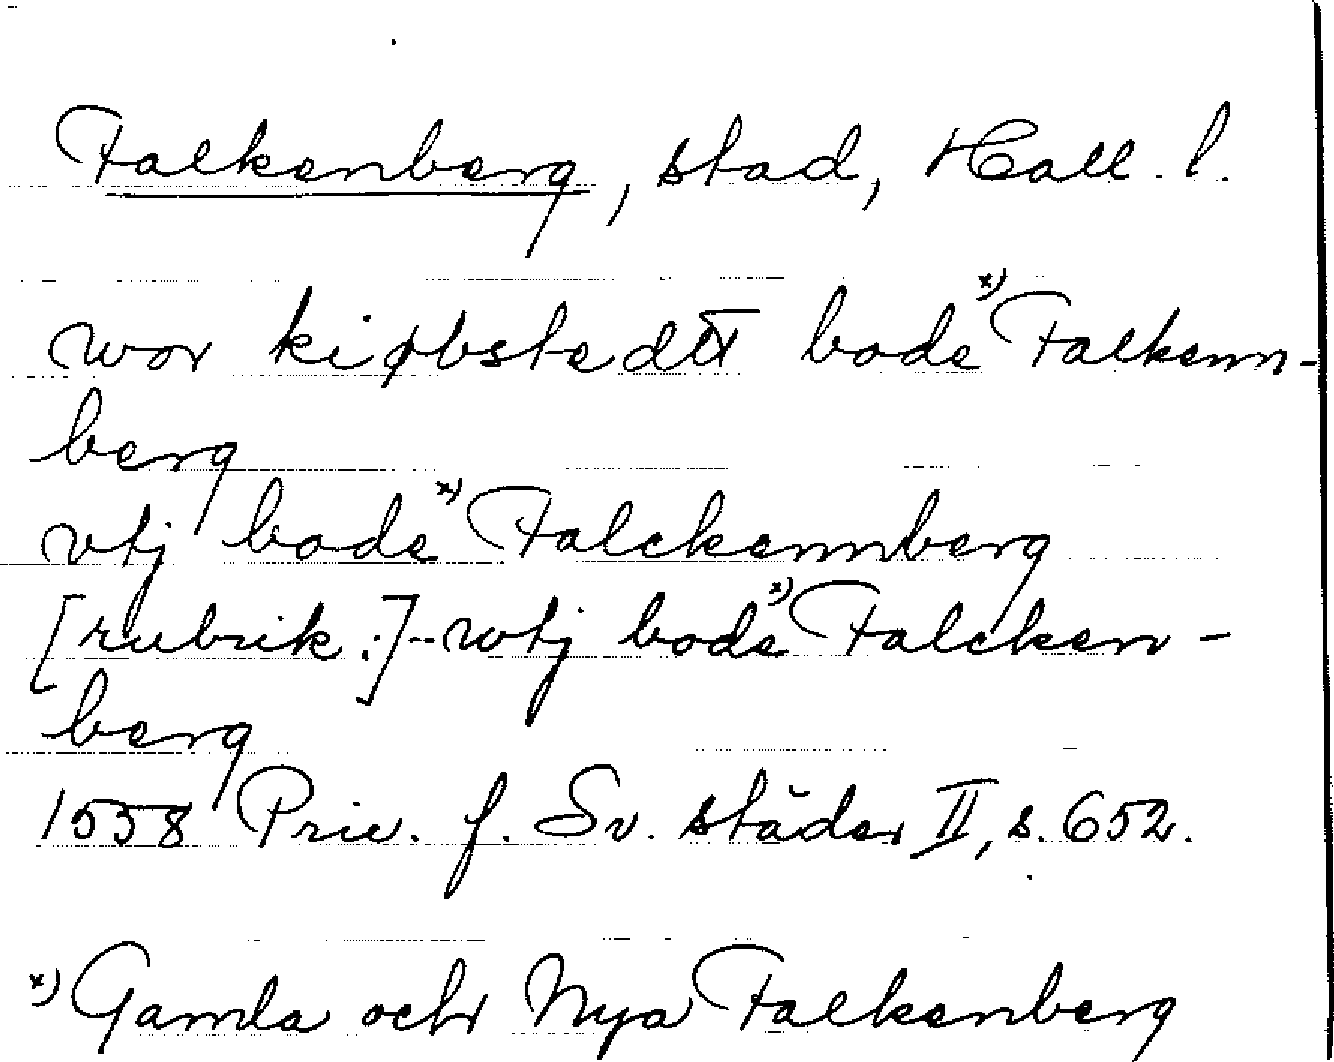 Falkenberg, stad, Hall. l.
wor kiøbstedtt bode x) Falkenn-
berg
vtj bode x) Falckennberg
[rubrik:] -- wtj bode x) Falcken-
berg
1558 Priv. f. Sv. städer II, s. 652.
x) Gamla och Nya Falkenberg